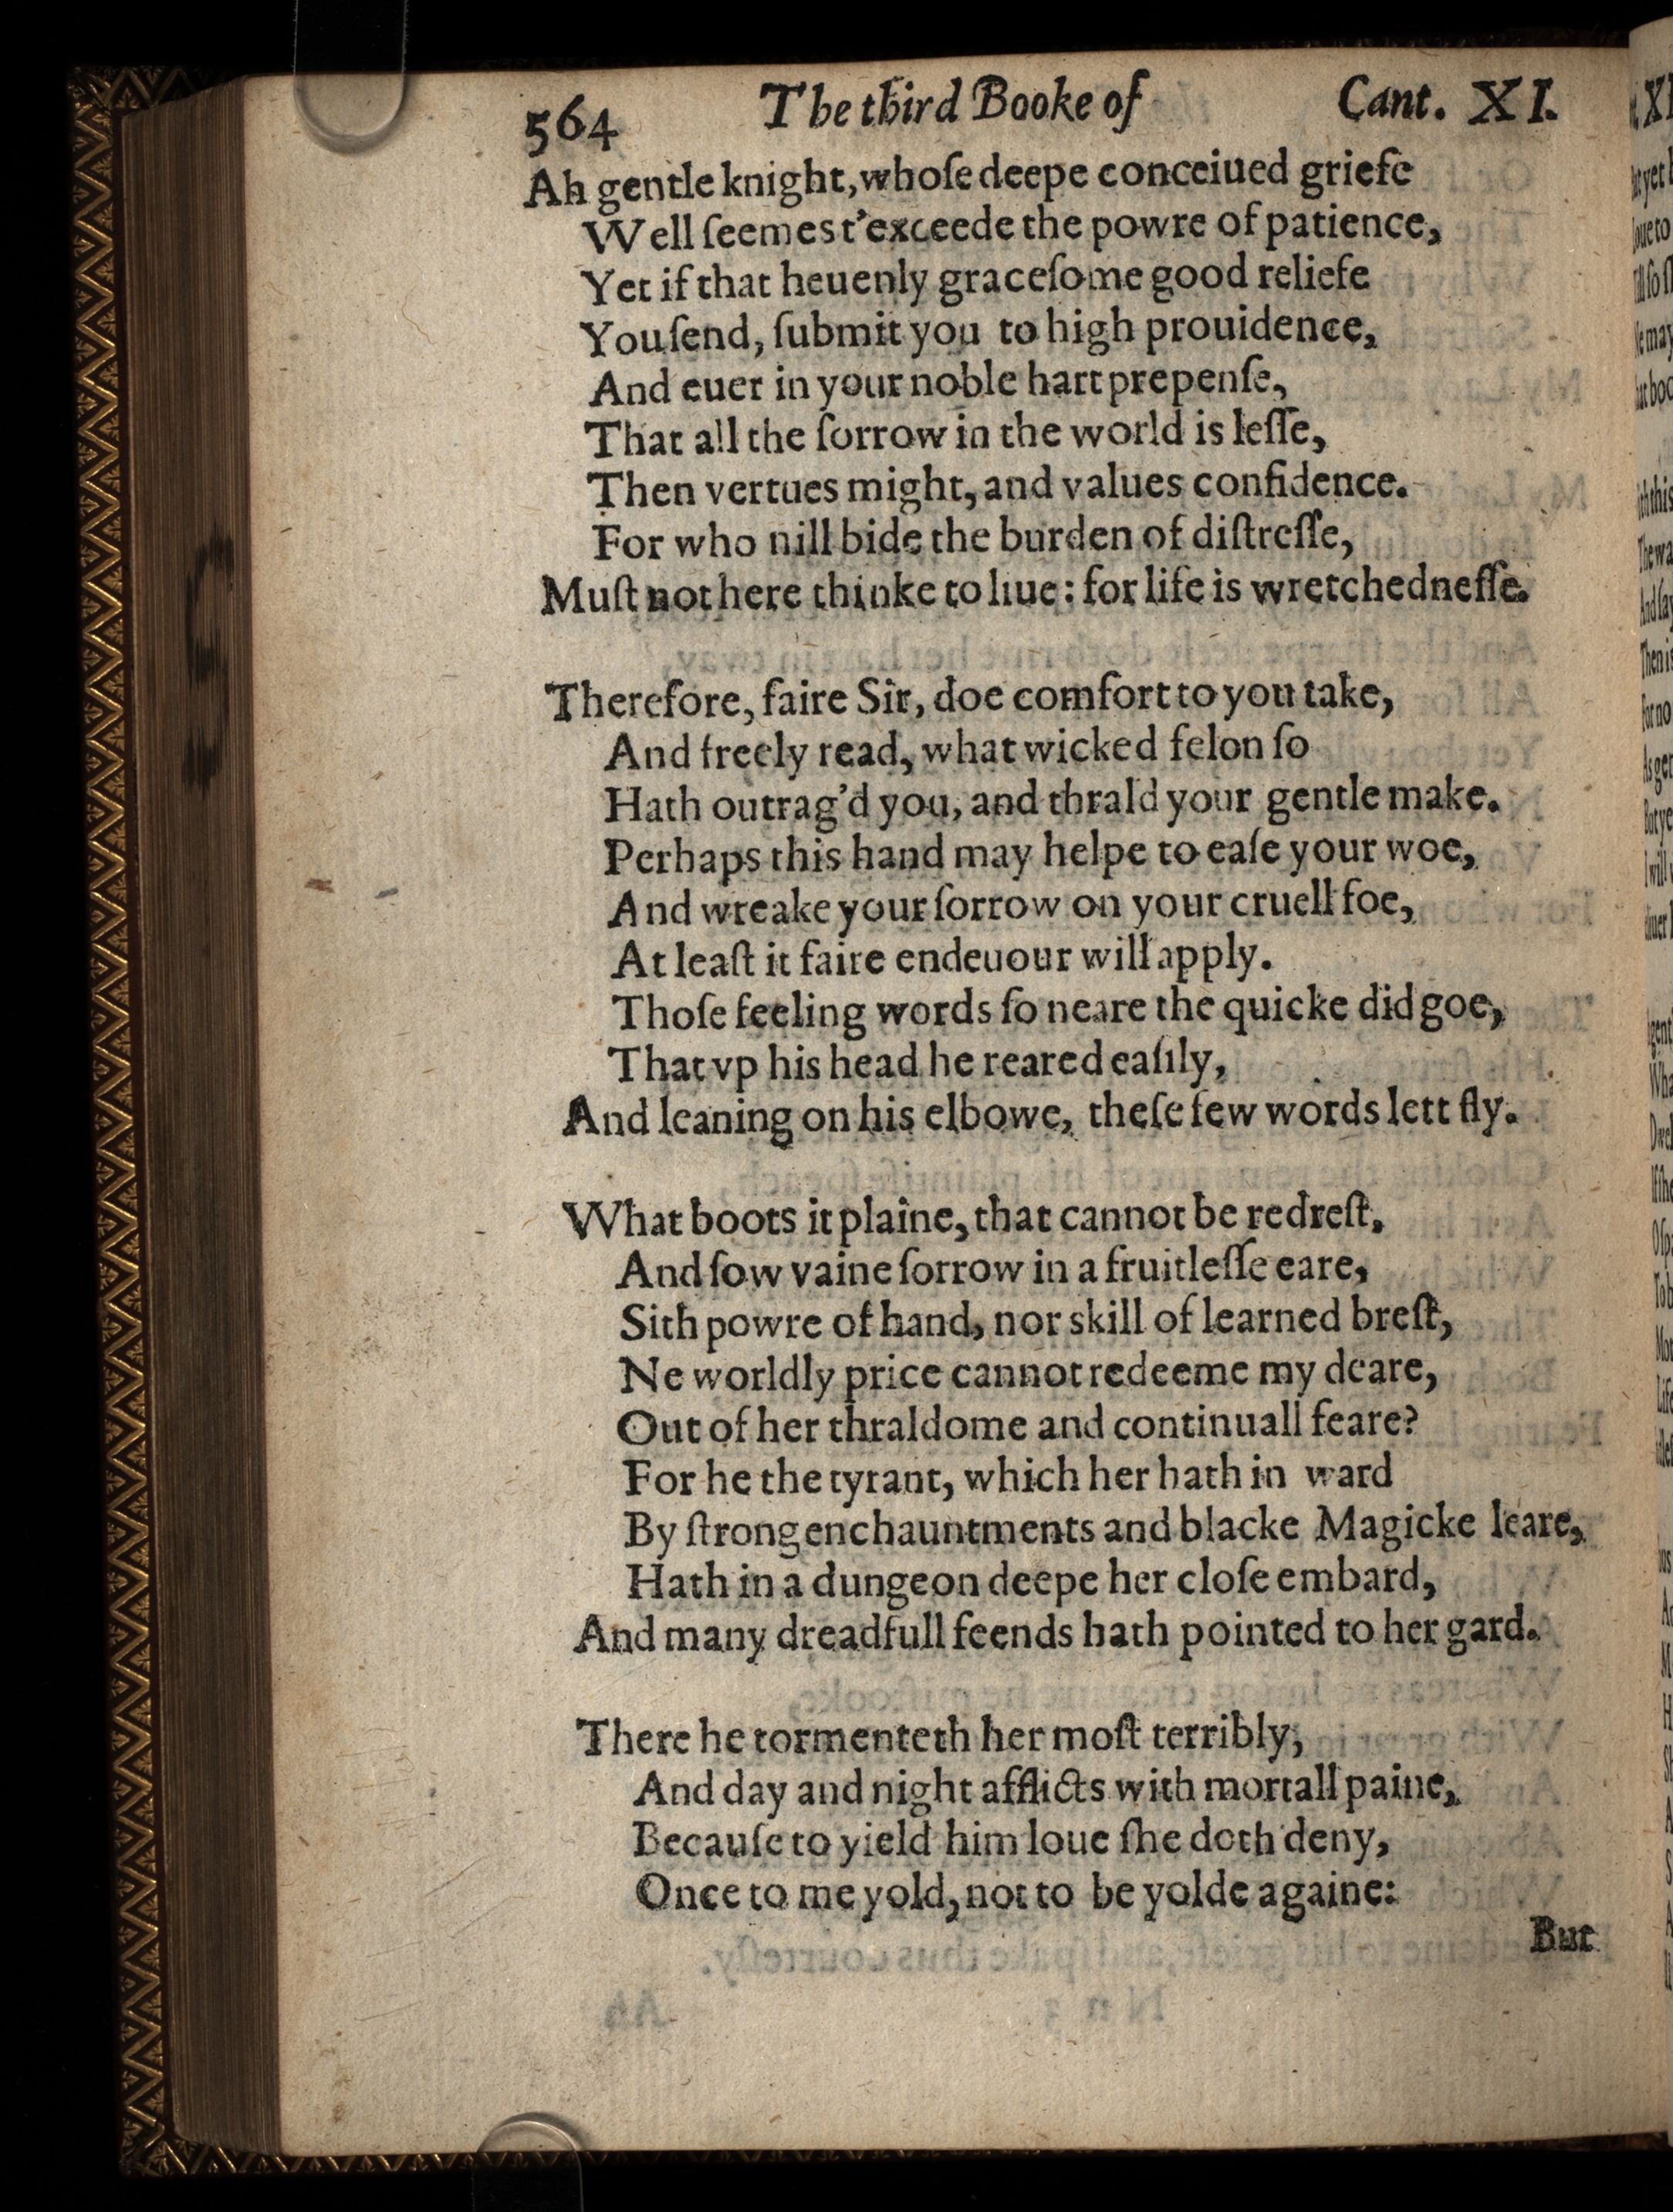 564 The third Booke of Cant. XI.
Ah gentle knight, whoſe deepe conceiued griefe
Well ſeemes t'exceede the powre of patience,
Yet if that heuenly grace ſome good reliefe
You ſend, ſubmit you to high prouidence,
And euer in your noble hart prepenſe,
That all the ſorrow in the world is leſſe,
Then vertues might, and values confidence.
For who nill bide the burden of diſtreſſe,
Muſt not here thinke to liue: for life is wretchedneſſe.
Therefore, faire Sir, doe comfort to you take,
And freely read, what wicked felon ſo
Hath outrag'd you, and thrald your gentle make.
Perhaps this hand may helpe to eaſe your woe,
And wreake your ſorrow on your cruell foe,
At leaſt it faire endeuour will apply.
Thoſe feeling words ſo neare the quicke did goe,
That vp his head he reared eaſily,
And leaning on his elbowe, theſe few words lett fly.
What boots it plaine, that cannot be redreſt,
And ſow vaine ſorrow in a fruitleſſe eare,
Sith powre of hand, nor skill of learned breſt,
Ne worldly price cannot redeeme my deare,
Out of her thraldome and continuall feare?
For he the tyrant, which her hath in ward
By ſtrong enchauntments and blacke Magicke leare,
Hath in a dungeon deepe her cloſe embard,
And many dreadfull feends hath pointed to her gard.
There he tormenteth her moſt terribly,
And day and night afflicts with mortall paine,
Becauſe to yield him loue ſhe doth deny,
Once to me yold, not to be yolde againe:
But